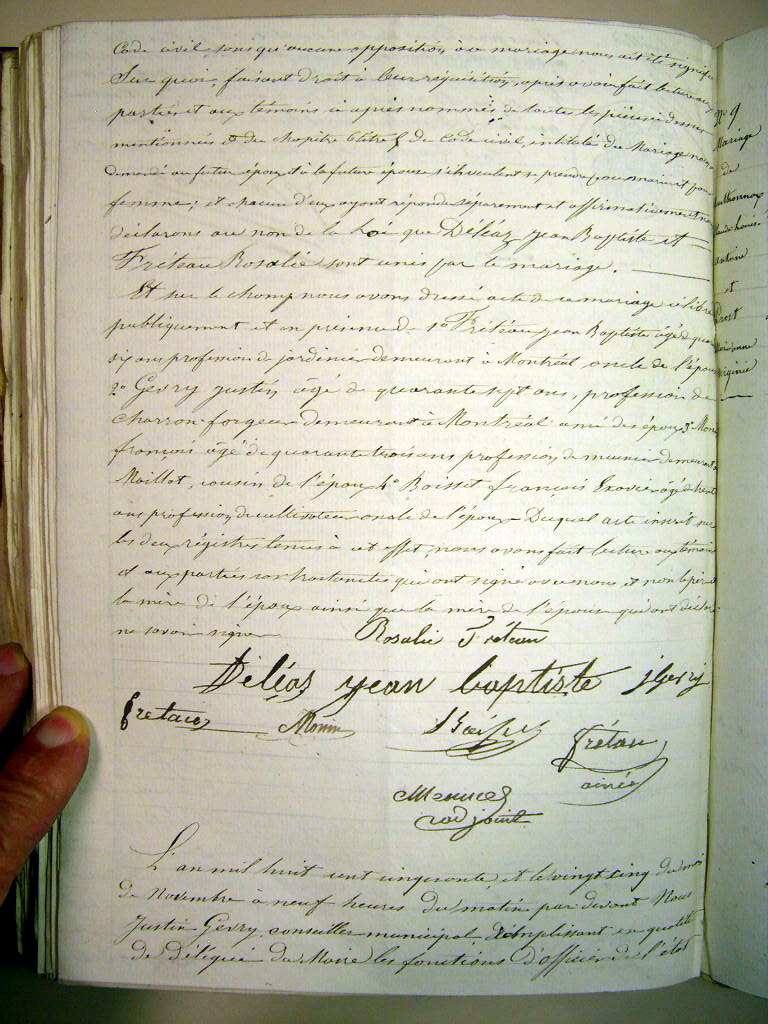 Code civil sans qu'aucune opposition à ce mariage nous ait été signifié
Sur quoi, faisant droit à leur réquisition, après avoir fait lecture aux
parties et aux témoins ci après nommés de toutes les pièces ci dessus
mentionnées et du chapitre 6 titre 5 du Code civil, intitulé du Mariage nous
demandé au futur époux et à la future épouse s'ils veulent se prendre pour mari et pour
femme; et chacun d'eux ayant répondu séparement et affirmativement nous
déclarons au nom de la Loi que Déléas jean Baptiste et
Fréteau Rosalie sont unis par le mariage.
Et sur le champ nous avons dressé acte de ce mariage célibré
publiquement et en présence de 1º Fréteau jean Baptiste âgé de quar
six ans profession de jardinier demeurant à Montréal oncle de l'épou
2º Gevry justin, âgé de quarante sept ans, profession de
charron-forgeur demeurant à Montréal ami des époux 3º Moni
françois âgé de quarante trois ans profession, de meunier demeurant à
Maillot, cousin de l'époux 4º Boisset françois Exavier âgé de trente
ans profession de cultivateur oncle de l'époux Duquel acte inscrit sur
les deux régistres tenues à cet effet, nous avons fait lecture aux témoins
et aux parties contractantes qui ont signé avec nous, et non le père et
la mère de l'époux ainsi que la mère de l'épouse qui ont déclaré
ne savoir signer
Rosalie Fréteau
Déléas jean baptiste jGevry
fretau Monin
frétau
ainée
adjoint
L'an mil huit cent cinquante, et le vingt cinq du mois
de Novembre à neuf heures du matin par devant Nous
Justin Gevry, conseiller municipal, Remplissant en qualité
de Délégué du Maire les fonctions d'officier de l'état
Nº 9
Mariage
de
et